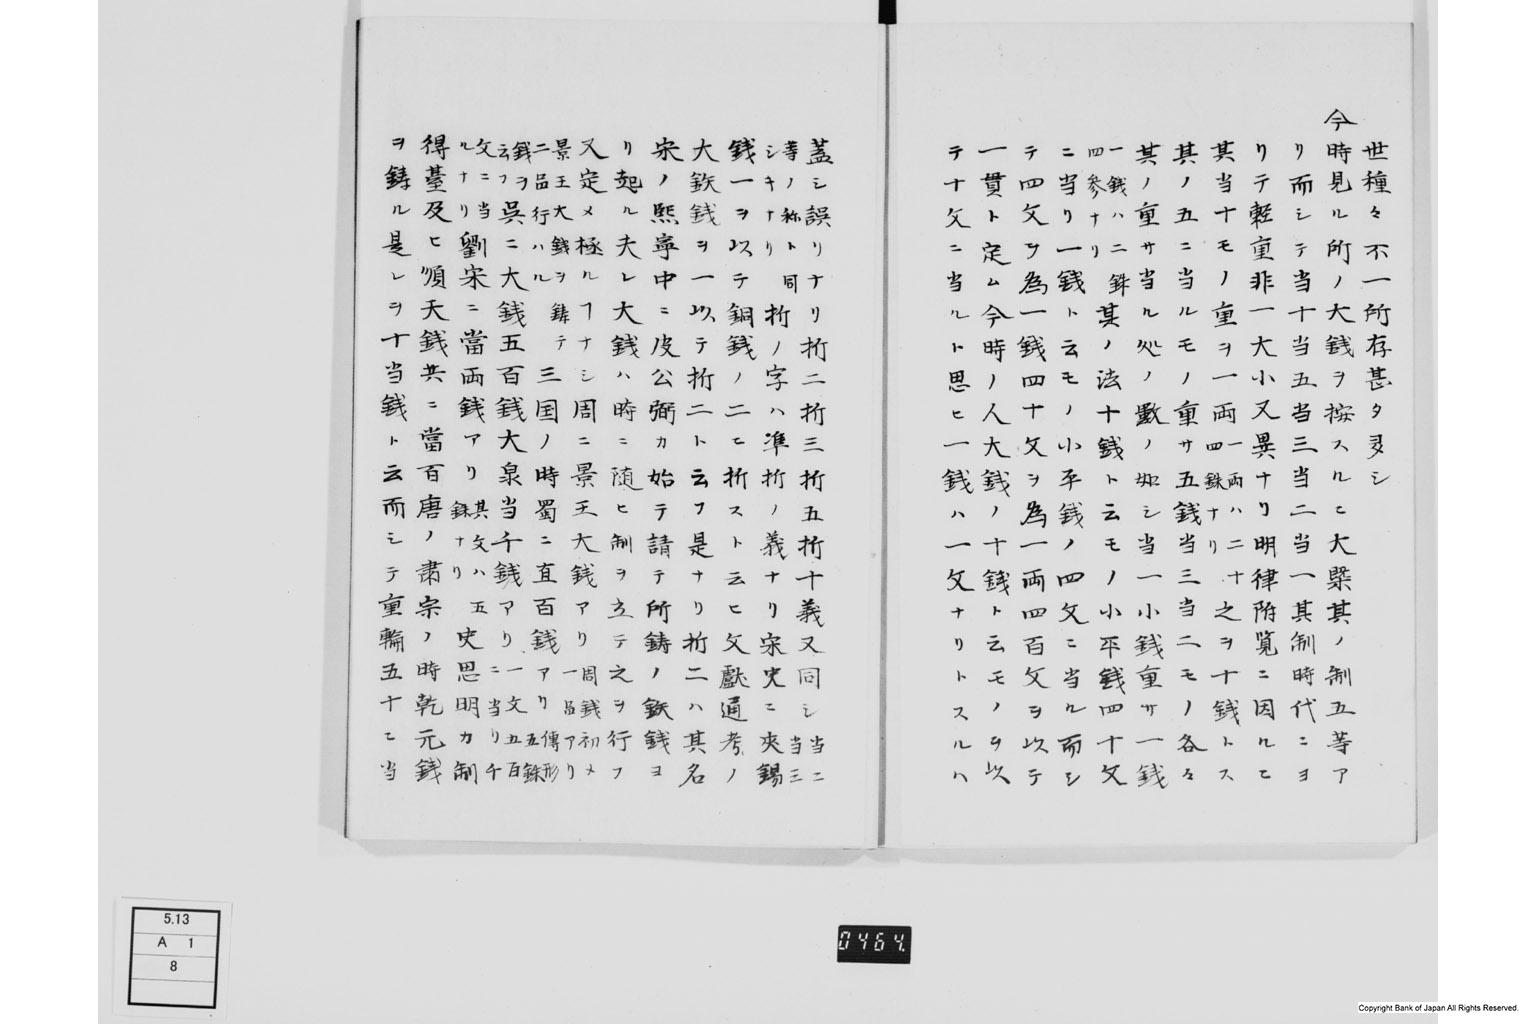 世種々不一所存甚タ多シ
今時見ル所ノ大銭ヲ按スルニ大槩其ノ制五等ア
リ而シテ当十当五当三当二当一其制時代ニヨ
リテ軽重非一大小又異ナリ明律附覧ニ因ルニ
其当十モノ重ヲ一両一両ハ二十四銖ナリ之ヲ十銭トス
其ノ五ニ当ルモノ重サ五銭当三当二モノ各々
其ノ重サ当ル処ノ數ノ如シ当一小銭重サ一銭
一銭ハ二銖四参ナリ其ノ法十銭ト云モノ小平銭四十文
ニ当リ一銭ト云モノ小平銭ノ四文ニ当ル而シ
テ四文ヲ為一銭四十文ヲ為一両四百文ヲ以テ
一貫ト定ム今時ノ人大銭ノ十銭ト云モノヲ以
テ十文ニ当ルト思ヒ一銭ハ一文ナリトスルハ
蓋シ誤リナリ折二折三折五折十義又同シ当二当三
等ノ称ト同シキナリ折ノ字ハ準折ノ義ナリ宋史ニ夾錫
銭一ヲ以テ銅銭ノ二ニ折スト云ヒ文獻通考ノ
大鉄銭ヲ一以テ折二ト云フ是ナリ折二ハ其名
宋ノ熙寧中ニ皮公弼カ始テ請テ所鋳ノ鉄銭ヨ
リ起ル夫レ大銭ハ時ニ随ヒ制ヲ立テ之ヲ行フ
又定メ極ルヿナシ周ニ景王大銭アリ周銭初メ一品アリ
景王大銭ヲ鋳テ二品行ハル三国ノ時蜀ニ直百銭アリ傳形五銖
銭ヲ云フ呉ニ大銭五百銭大泉当千銭アリ一文五百ニ当リ千
文ニ当ルナリ劉宋ニ當両銭アリ其文ハ五銖ナリ史思明カ制
得䑓及ヒ順天銭共ニ當百唐ノ肅宗ノ時乾元銭
ヲ鋳ル是レヲ十当銭ト云而シテ重輪五十ニ当
5.13
A 1
8
0464
Copyright Bank of Japan All Rights Reserved.